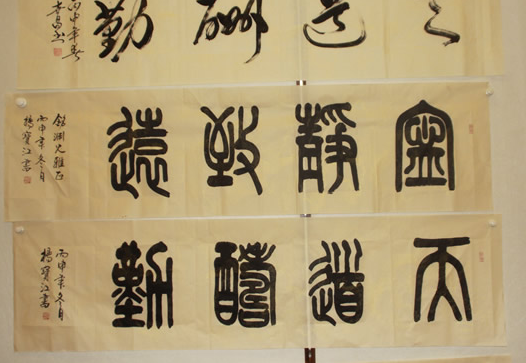 道酬勤
丙申年
寧靜致遠
兄雅正
丙申年冬月
楊寶江書
天道酬勤
丙申年冬月
楊寶江書